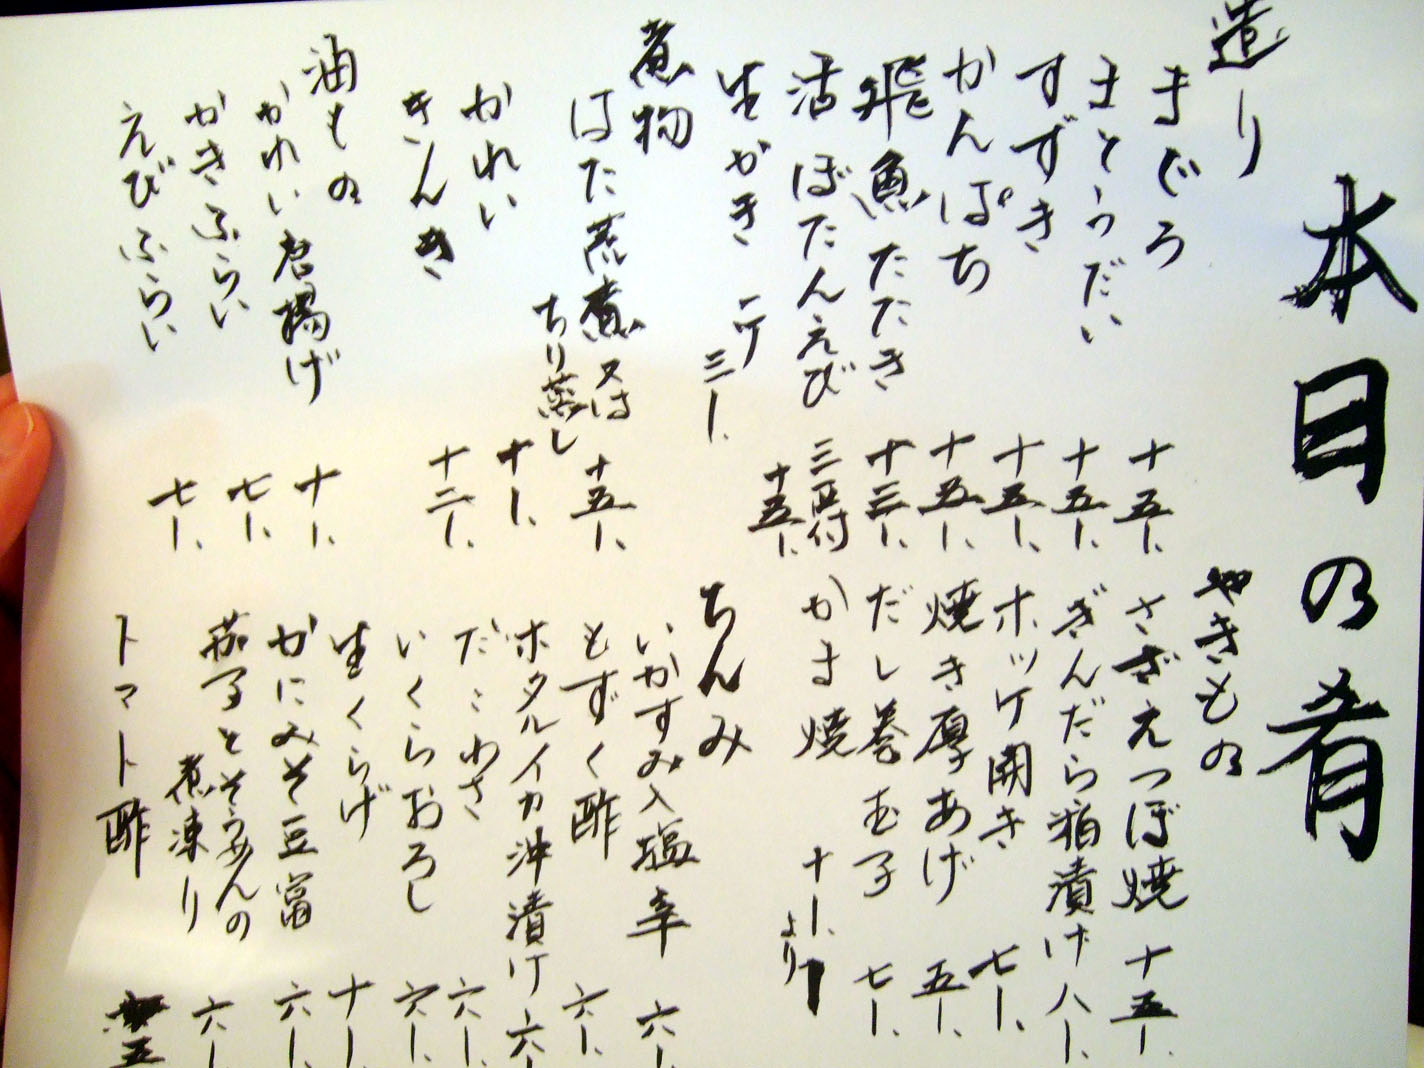 本日の肴
造り
まぐろ 十五ー、
まとうだい 十五ー、
すずき 十五ー、
かんぱち 十五ー、
飛魚たたき 十三ー、
活ぼたんえび 三〆付
十五ー、
生かき 一ケ
三ー、
煮物
はた荒煮又は 十五ー、
ちり蒸し
かれい 十ー、
きんき 十二ー、
油もの
かれい唐揚げ 十ー、
かきふらい 七ー、
えびふらい 七ー、
やきもの
さざえつぼ焼 十五ー、
ぎんだら粕漬け 八ー、
ホッケ開き 七ー、
焼き厚あげ 五ー、
だし巻玉子 七ー、
かま焼 十ー、より
ちんみ
いかすみ入塩辛 六ー
もずく酢 六ー、
ホタルイカ沖漬け 六ー
たこわさ 六ー、
いくらおろし 六ー、
生くらげ 十ー、
かにみそ豆富 六ー、
茄子とそうめんの
煮凍り 六ー
トマト酢 五